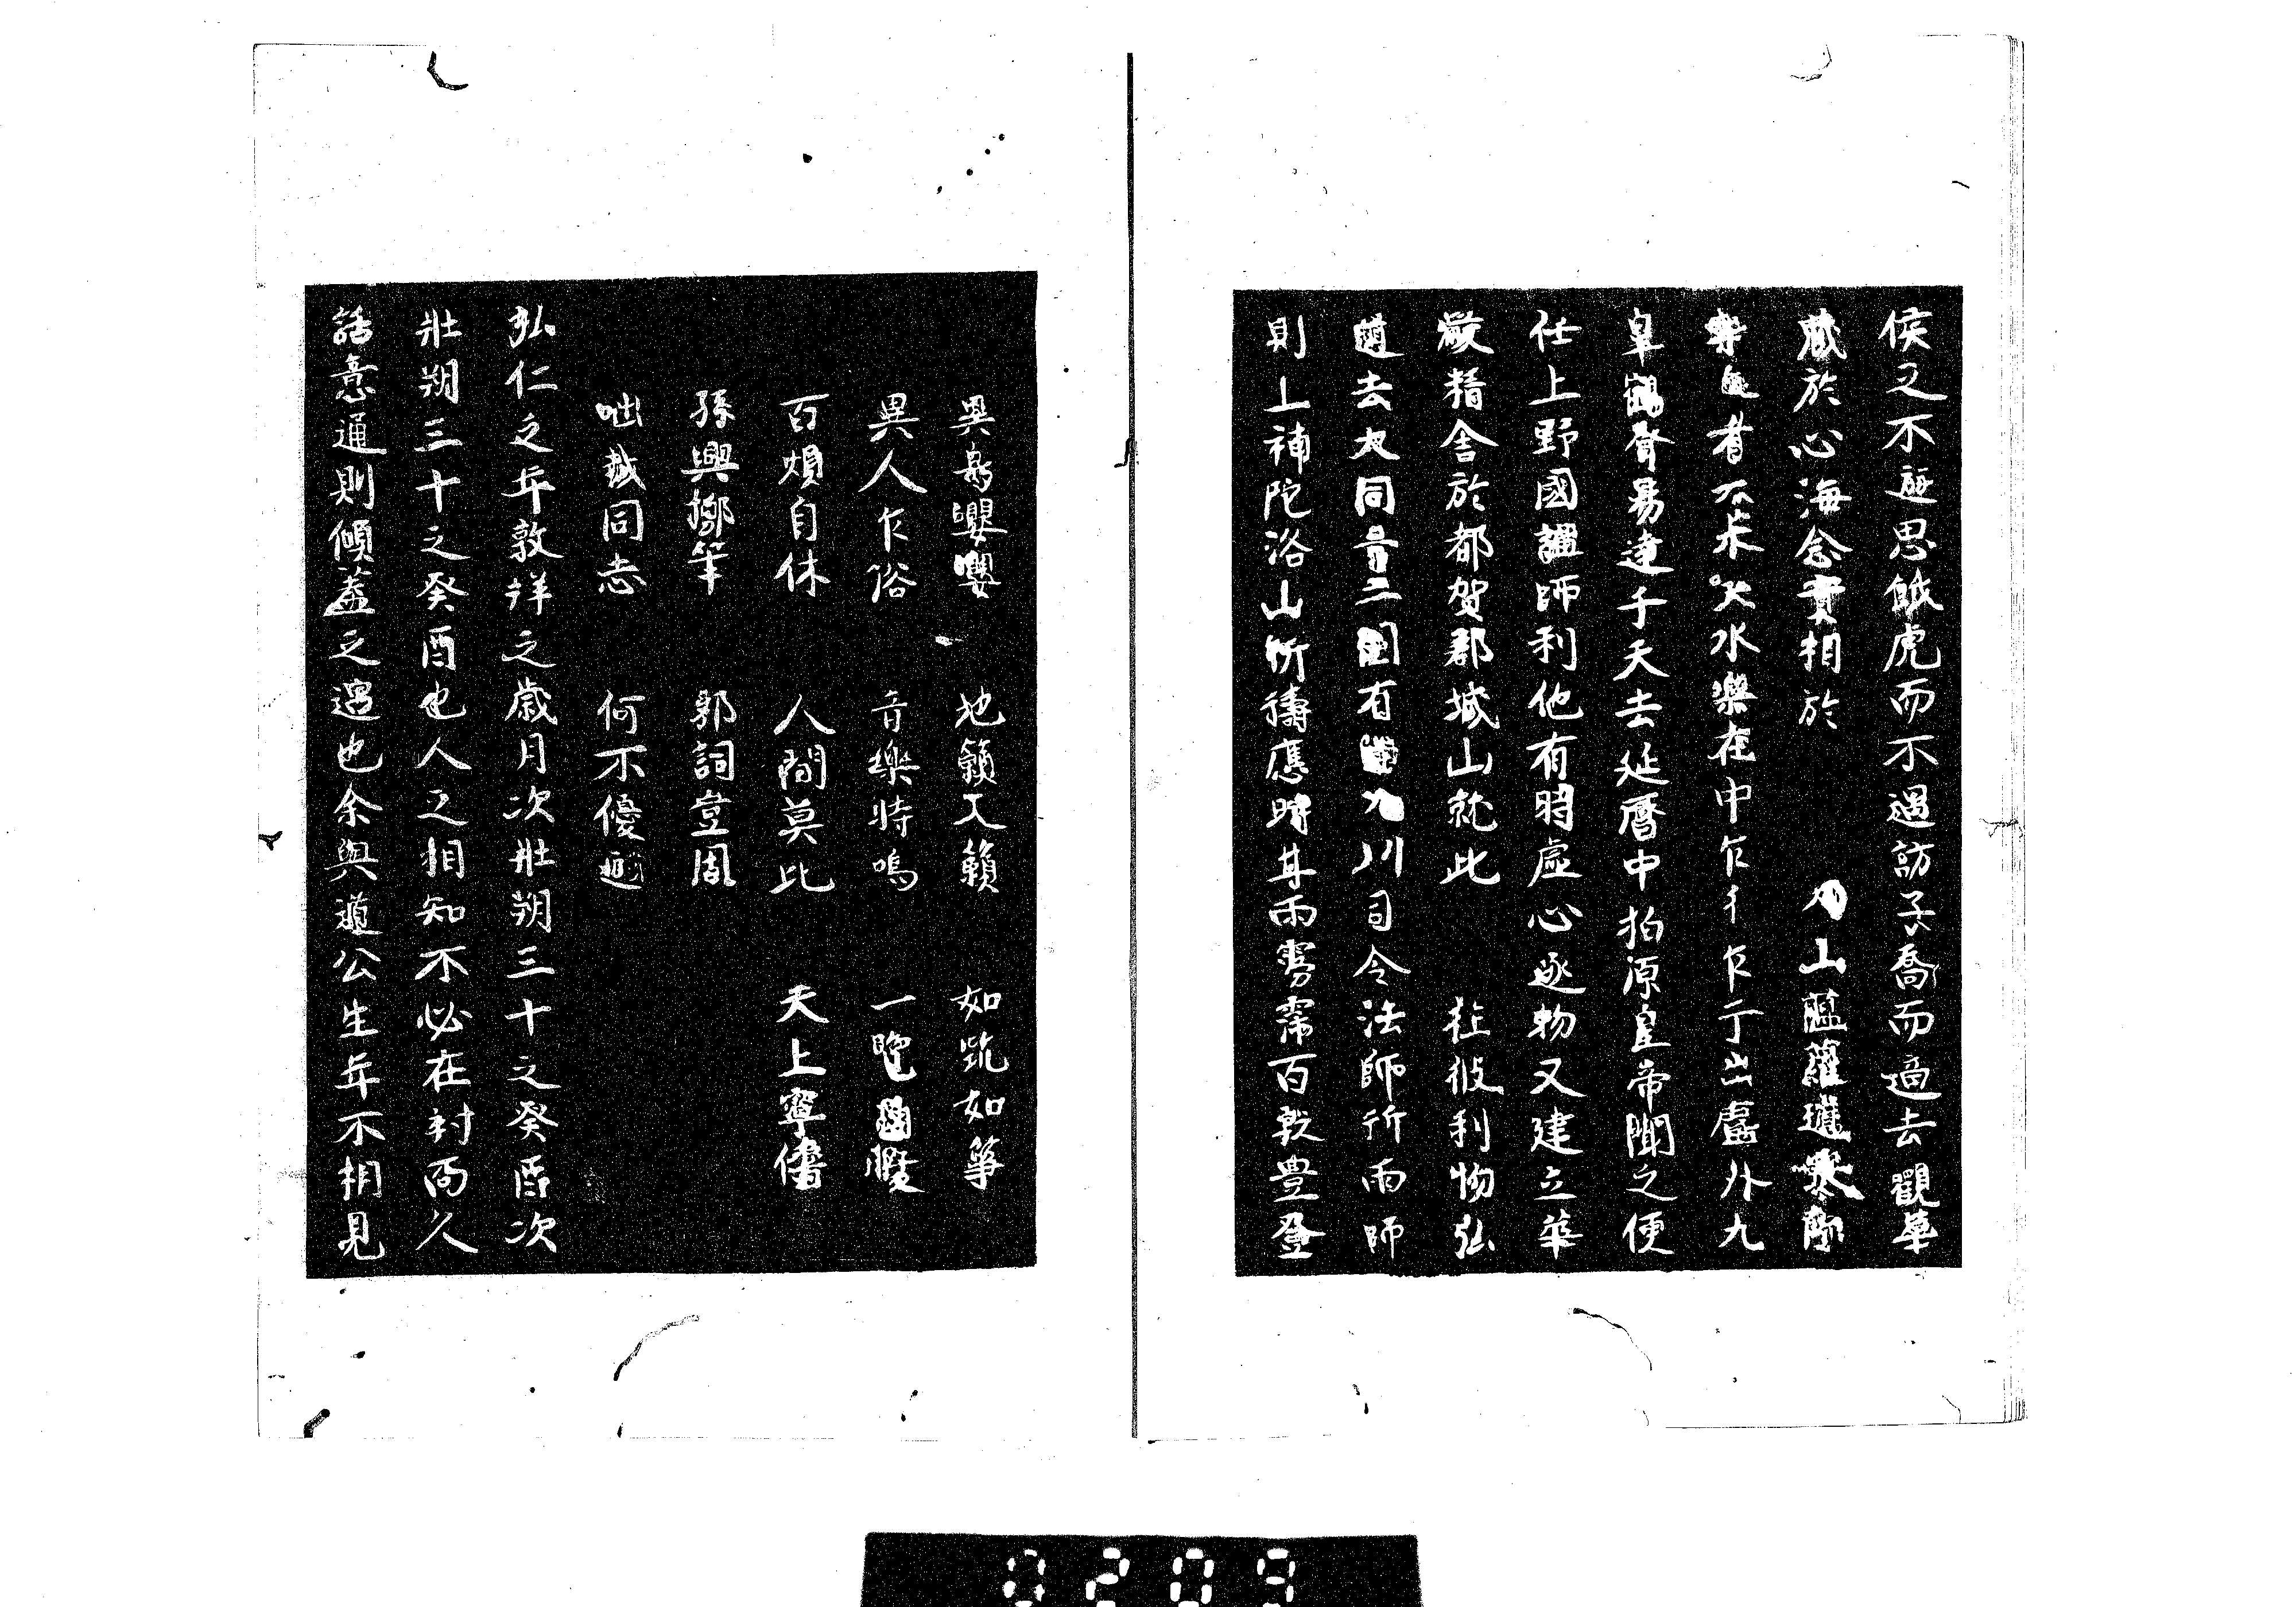 侯之不遊思餓虎而不遇訪子喬而適去觀華
藏於心海念實相於 山蘿蘿
有不朱火水樂在中乍彳乍亍出處外九
皐鶴聲易達于天去延曆中柏原皇帝聞之便
任上野國講師利他有時虛心逐物又建立華
嚴精舍於都賀郡城山就此 往彼利物弘
道去大同二國有九川司令法師祈雨師
則上補陀洛山祈禱應時甘雨霶霈百穀豊登
異鳥嚶嚶 地籟天籟 如筑如箏
異人乍俗 音樂時鳴 一覽
百煩自休 人間莫比 天上寧儔
孫興擲筆 郭詞豈周
咄哉同志 何不優遊
弘仁之年敦牂之歲月次壯朔三十之癸酉次
壯朔三十之癸酉也人之相知不必在對面久
話意通則傾蓋之遇也余與道公生年不相見
0209